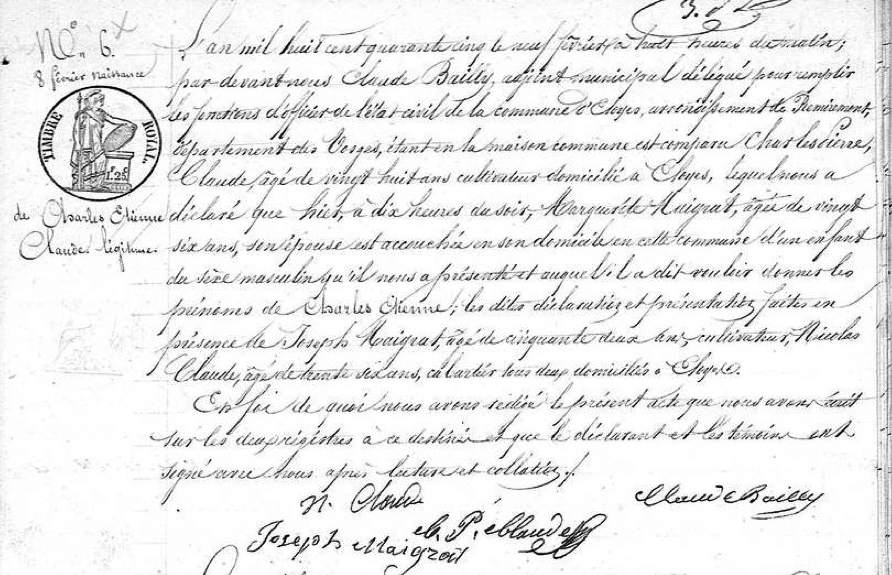 N° 6.
8 février naissance
TIMBRE ROYAL.
1F. 25c
de Charles Etienne
Claude légitime.
L'an mil huit cent quarante cinq le neuf février à huit heures du matin;
par-devant nous Claude Bailly, adjoint municipal délégué pour remplir
les fonctions d'officier de l'état civil de la commune d'Eloyes, arrondissement de Remiremont,
département des Vosges, étant en la maison commune est comparu Charles pierre
Claude, agé de vingt huit ans cultivateur domicilié à Eloyes, lequel nous a
déclaré que hier, à dix heures du soir, Marguerite Maigrat, agée de vingt
six ans, son épouse est accouchée en son domicile en cette commune d'un enfant
du sèxe masculin qu'il nous a présenté et auquel il a dit vouloir donner les
prénoms de Charles Etienne; les dites déclaration et présentation faites en
présence de Joseph Maigrat, agé de cinquante deux ans, cultivateur, Nicolas
Claude, agé de trente six ans, tous deux domiciliés à Eloyes.
En foi de quoi nous avons rédigé le présent acte que nous avons
sur les deux régistres à ce destinés et que le déclarant et les témoins ont
signé avec nous après lecture et collation ./.
N. Claude
Claude Bailly
C. P. Claude
Joseph Maigrat